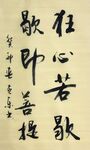 狂心若歇
歇即菩提